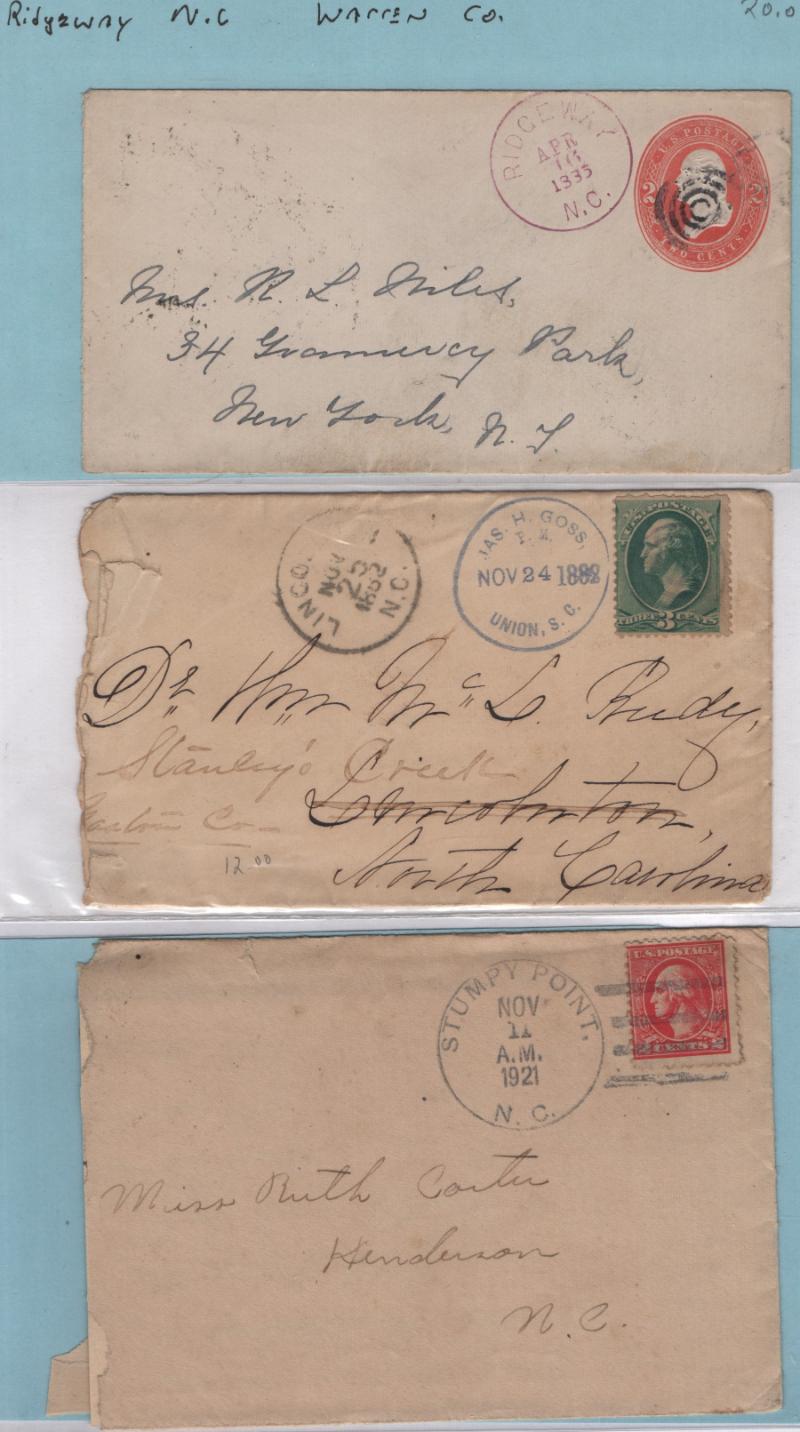 Ridgeway N.C Warren Co. 20.0
RIDGEWAY
APR
1885
N.C.
U.S. POSTAGE
2 2
TWO CENTS
Mrs. R. L. Niles,
34 Gramercy Park,
New York, N. Y.
LINCO
NOV
25
1882
N.C.
JAS. H. GOSS,
P. M.
NOV 24 1882
UNION, S. C.
U.S. POSTAGE
THREE 3 CENTS
Dr Wm Mc L. Rudy,
Stanley's Creek
Gaston Co
Lincolnton,
12.00
North Carolina
STUMPY POINT,
NOV
11
A.M.
1921
N. C.
U.S. POSTAGE
CENTS 2
Miss Ruth Carter
Henderson
N. C.